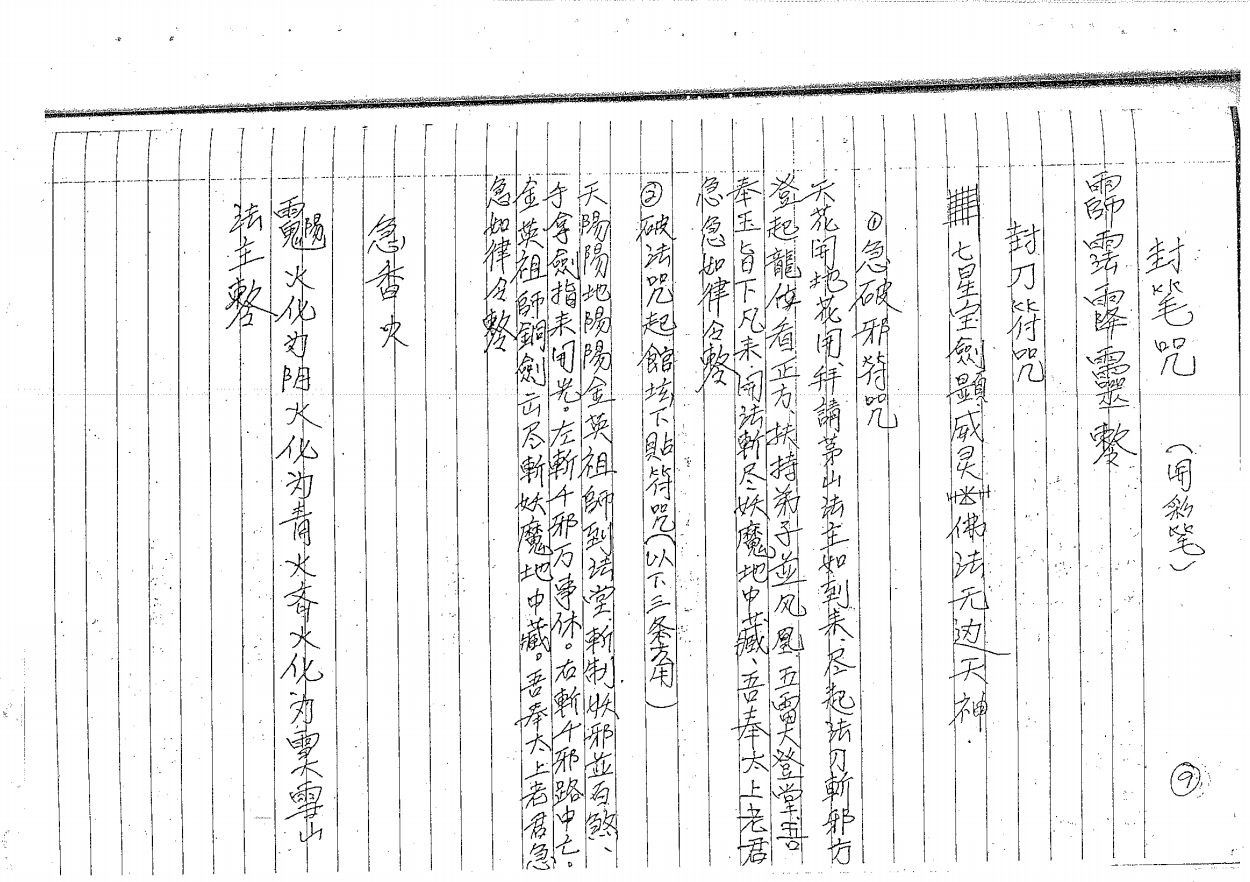 封笔咒 (用彩笔)
⑨
封刀符咒
七星宝劍顯威灵 佛法无边天神.
①急破邪符咒
天花開地花開、拜請茅山法主如到来、尽起法刀斬邪方
登起龍 看正方、扶持弟子並凤凰、五雷 登堂吾
奉玉旨下凡来、開法斬尽妖魔地中藏、吾奉太上老君
急急如律令
②破法咒起館坛下貼符咒(以下三条方用)
天陽陽地陽陽金英祖師到法堂、斬制妖邪並百煞、
手拿劍指来開光。左斬千邪万事休。右斬千邪路中亡。
金英祖師銅劍 尽斬妖魔地中藏。吾奉太上老君急
急如律令
急香火
火化为阴火化为青火 火化为 雪山
法主